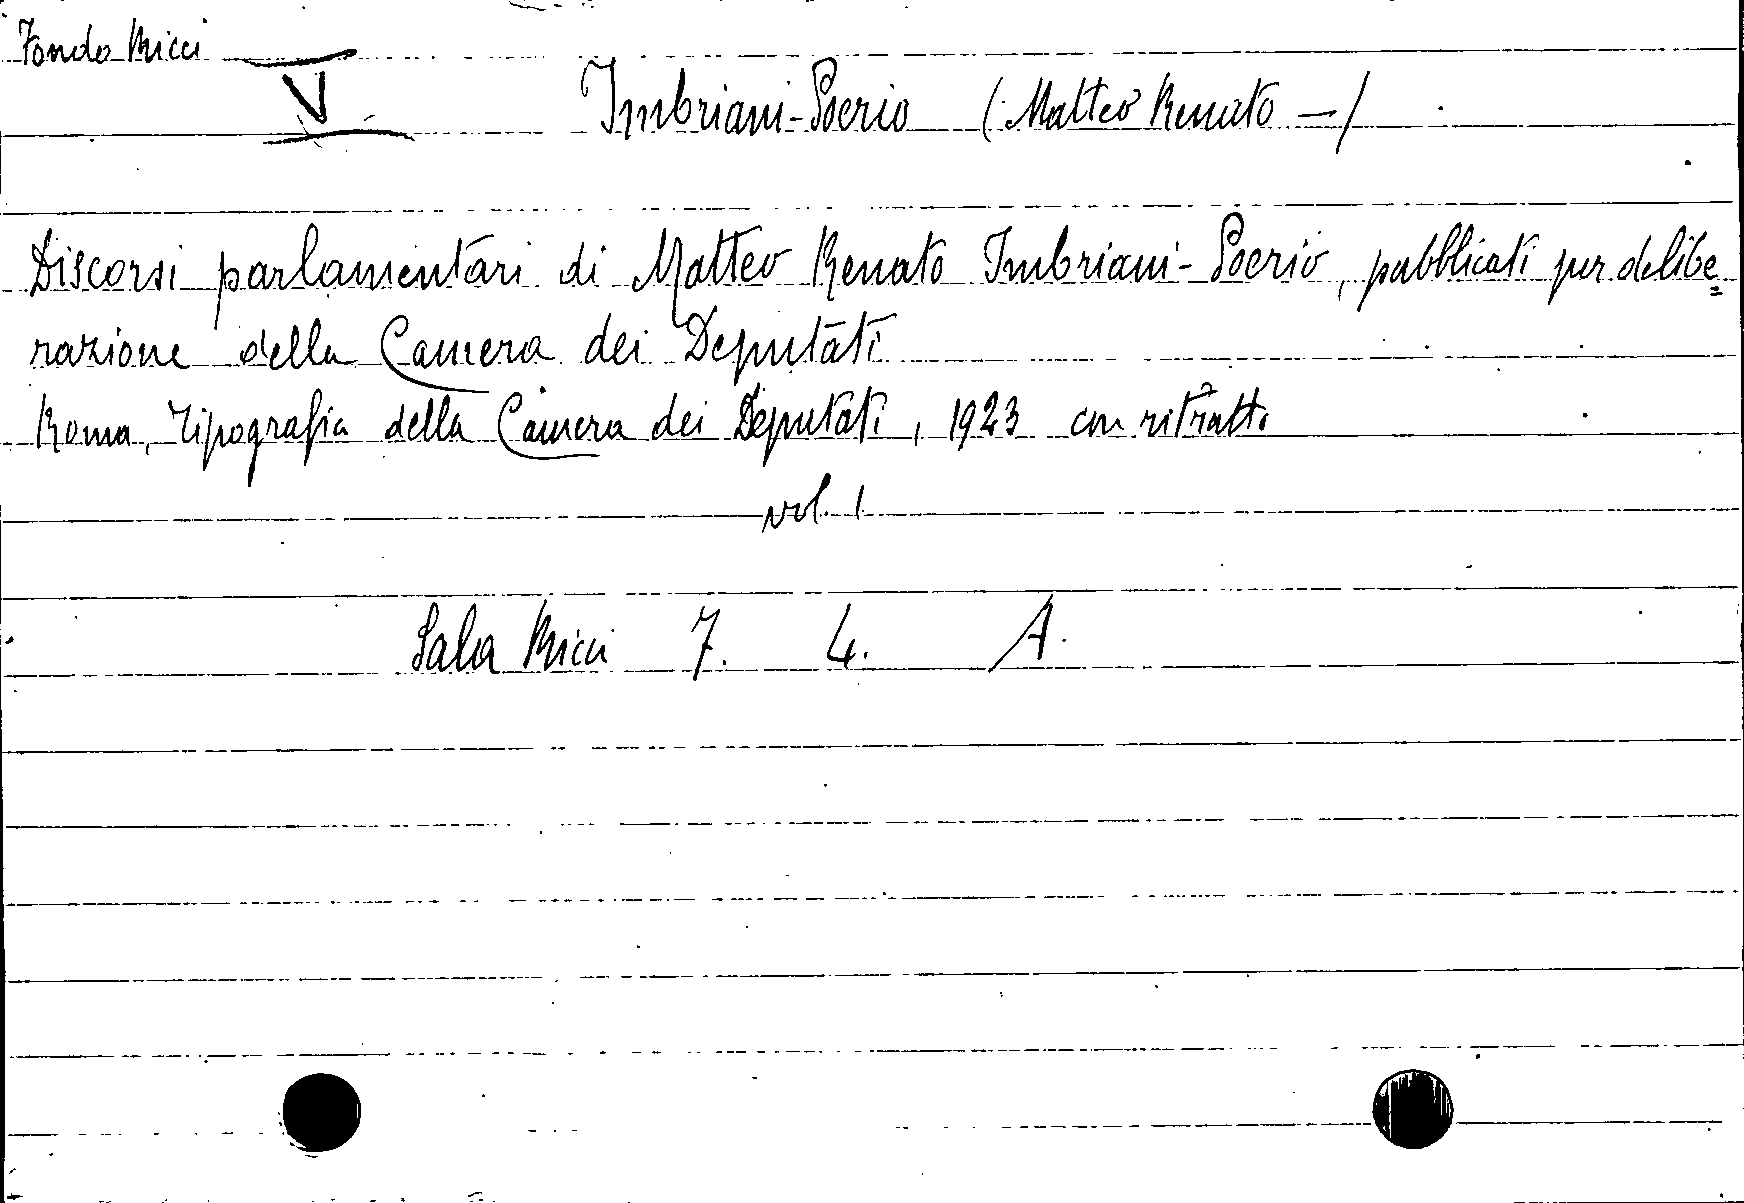 Fondo Ricci
V
Imbriani-Poerio (Matteo Renato —)
Discorsi parlamentari di Matteo Renato Imbriani-Poerio, pubblicati per delibe=
razione della Camera dei Deputati
Roma, Tipografia della Camera dei Deputati, 1923 con ritratto
vol. 1
Sala Ricci 7. 4. A.